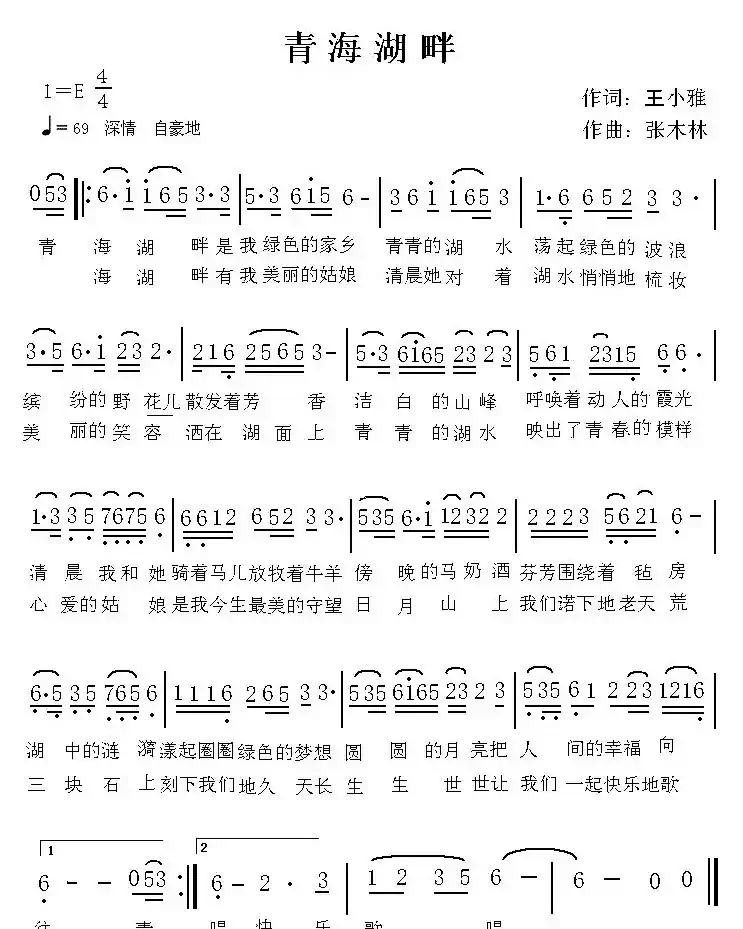 青海湖畔
1=E 4/4
♩=69 深情 自豪地
作词：王小雅
作曲：张木林
053 ‖: 6·1 165 3·3 | 5·3 615 6- | 361 1653 | 1·6 652 33· |
青 海 湖 畔是我绿色的家乡 青青的湖 水 荡起绿色的波浪
海 湖 畔有我美丽的姑娘 清晨她对 着 湖水悄悄地梳妆
3·5 6·1 23 2· | 216 2565 3- | 5·3 6165 23 23 | 561 2315 66· |
缤 纷的野 花儿散发着芳 香 洁 白 的山峰 呼唤着动人的霞光
美 丽的笑 容 洒在 湖面上 青 青 的湖水 映出了青春的模样
1·3 35 7675 6 | 6612 652 33· | 535 6·1 1232 2 | 2223 5621 6- |
清 晨 我和她骑着马儿放牧着牛羊 傍 晚的马奶酒 芬芳围绕着 毡 房
心 爱的姑 娘是我今生最美的守望 日 月 山 上 我们诺下地老天荒
6·5 35 765 6 | 1116 265 33· | 535 6165 23 23 | 535 61 223 1216 |
湖 中的涟 漪漾起圈圈绿色的梦想 圆 圆 的月亮把人 间的幸福向
三 块 石 上刻下我们地久天长 生 生 世世让我们一起快乐地歌
1 2
6-- 053 :‖ 6-2·3 | 1235 6- | 6-00 ‖
往 青 唱 快 乐 歌 唱